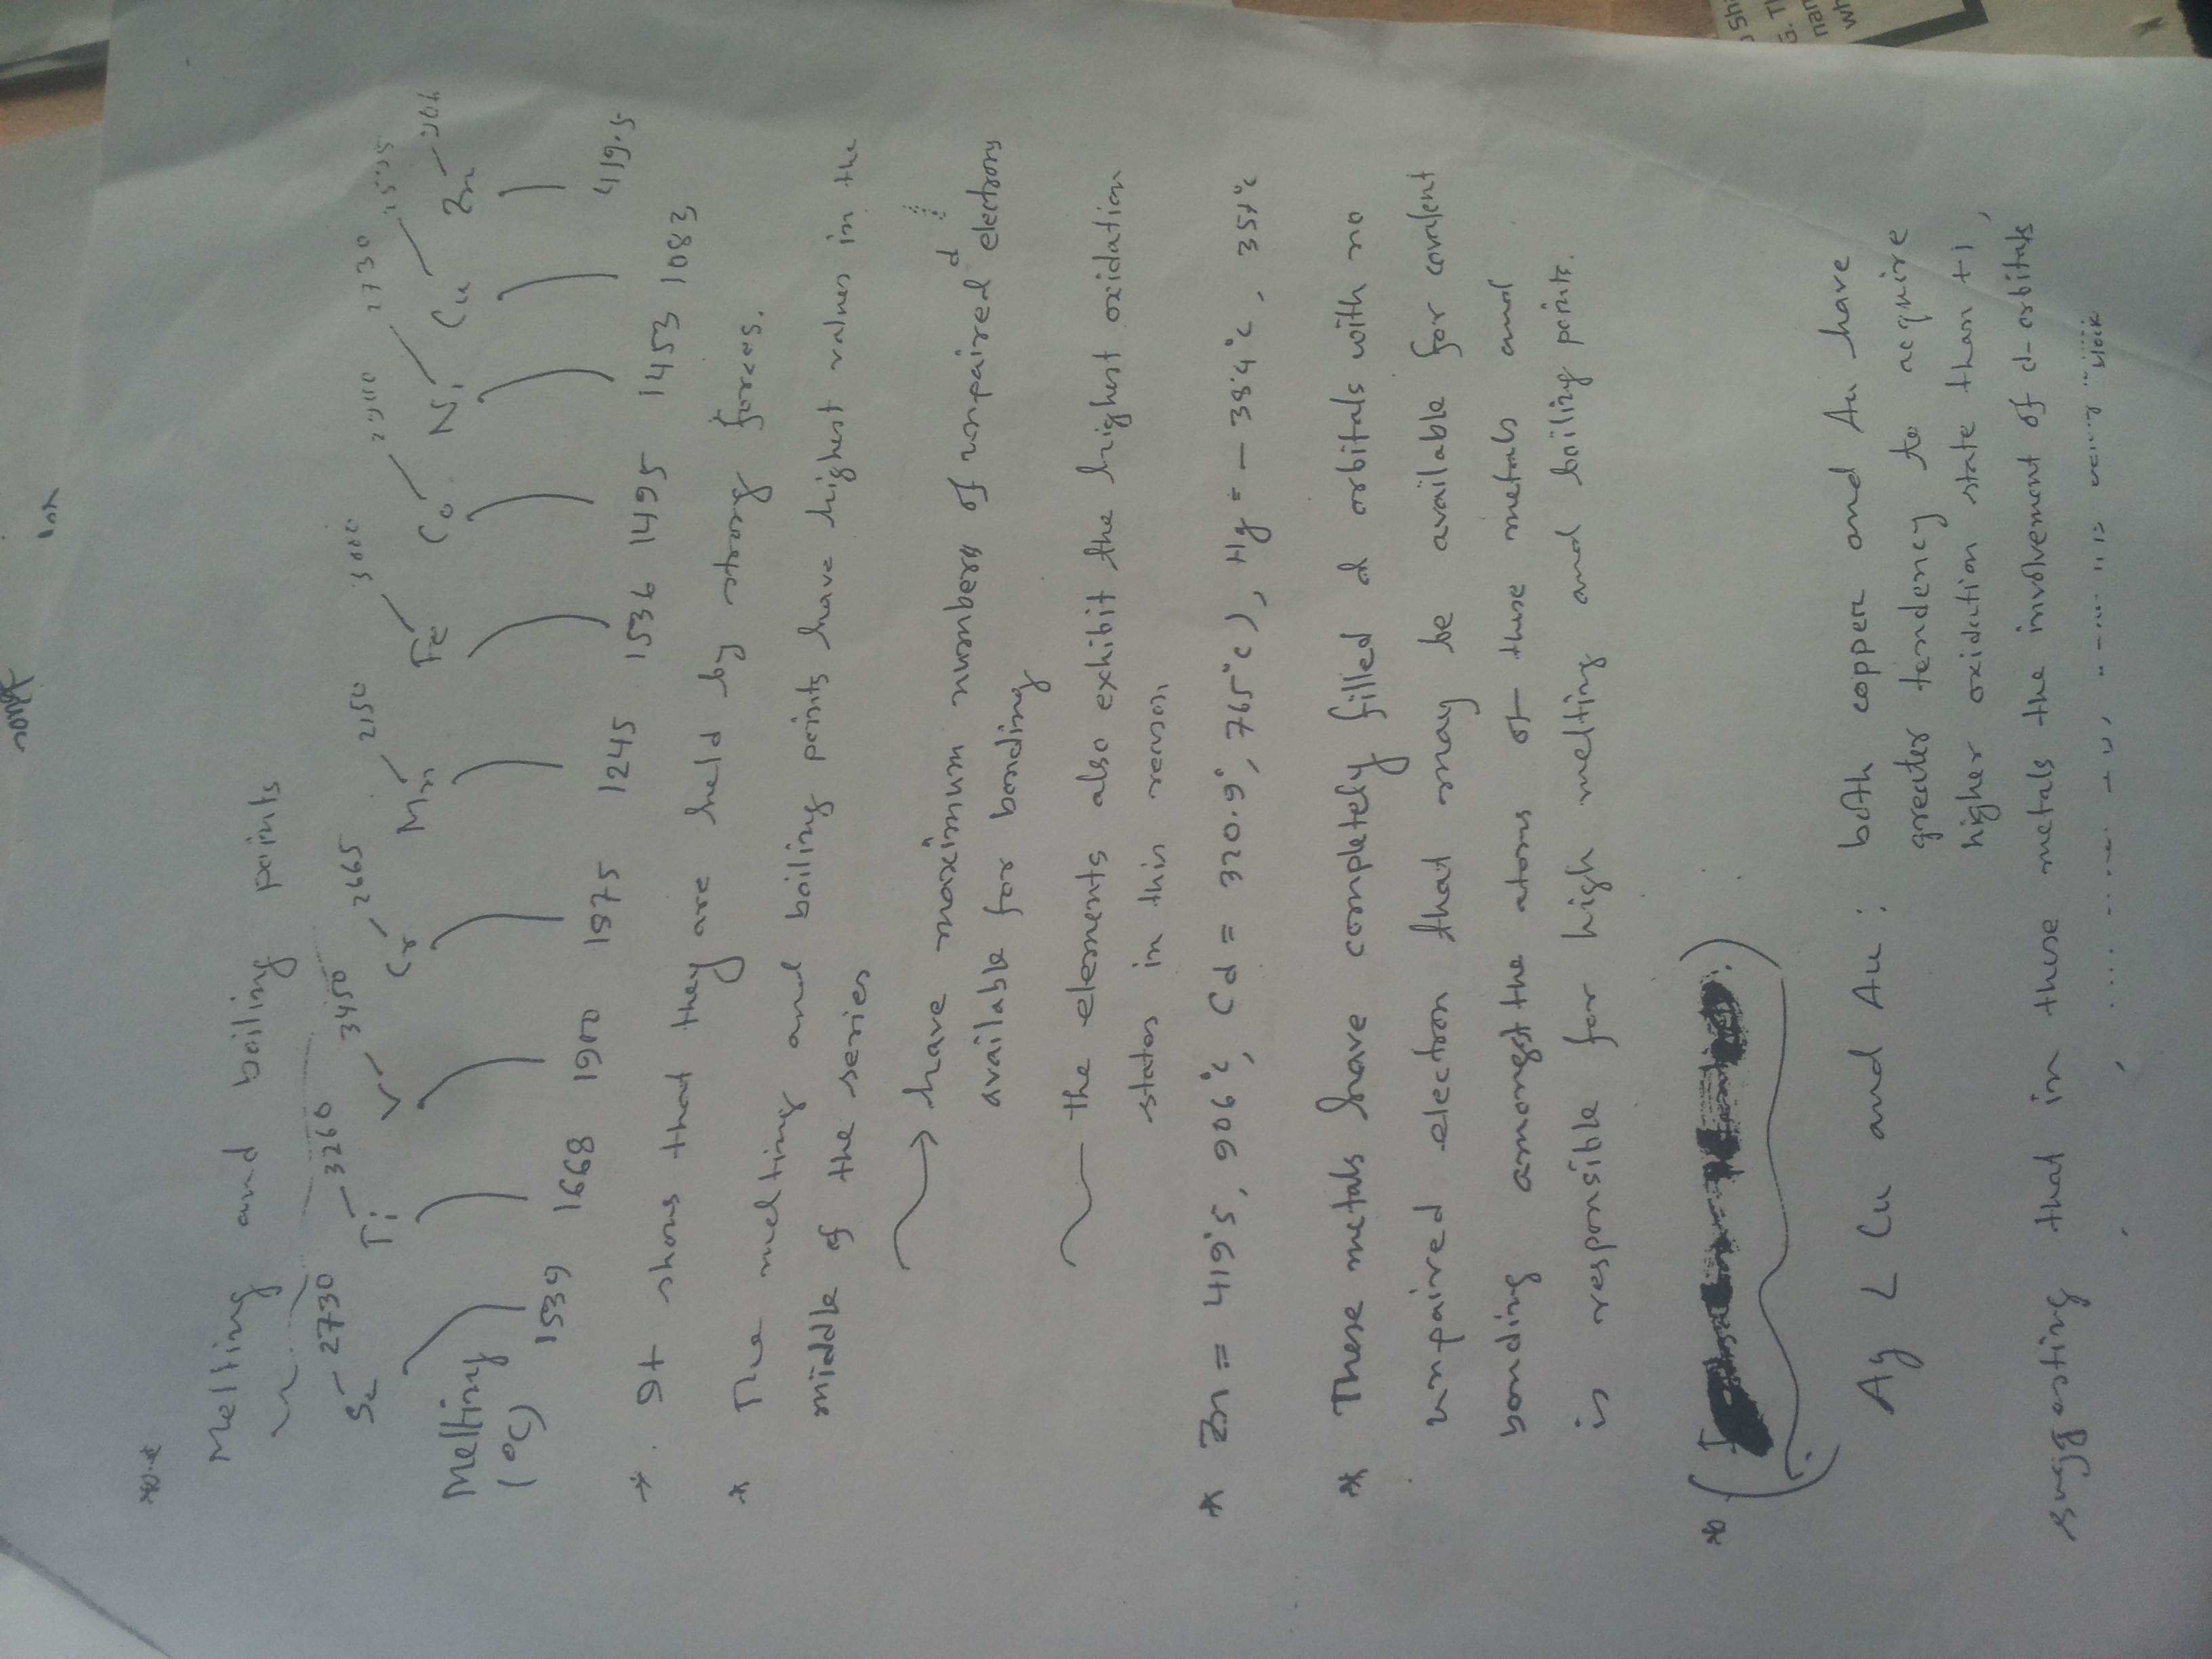 Melting and boiling points
Sc 2730 Ti 3260 V 3450 Cr 2665 Mn 2150 Fe 3000 Co 2900 Ni 2730 Cu Zn 906
Melting
(°C)
1539 1668 1900 1875 1245 1536 1495 1453 1083 419.5
* It shows that they are held by strong forces.
* The melting and boiling points have highest values in the
middle of the series
have maximum numbers of unpaired d electrons
available for bonding
the elements also exhibit the highest oxidation
states in this reason
* Zn = 419.5, 906°C, Cd = 320.9°, 765°C), Hg = - 38.4°C, 357°C
* These metals have completely filled d orbitals with no
unpaired electron that may be available for covalent
bonding amongst the atoms of these metals and
is responsible for high melting and boiling points.
Ag < Cu and Au : both copper and Au have
greater tendency to acquire
higher oxidation state than +1,
suggesting that in these metals the involvement of d-orbitals